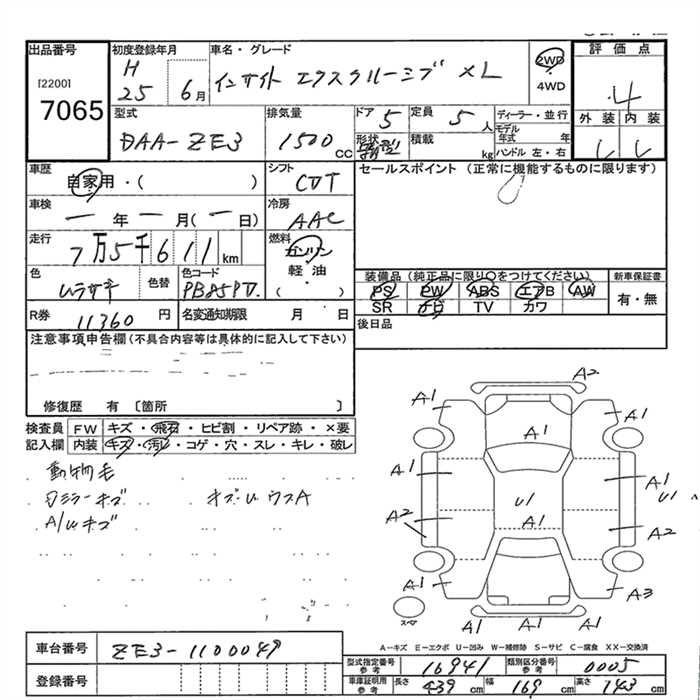 出品番号
[2200]
7065
初度登録年月
H
25 6月
車名・グレード
インサイト エクスクルーシブ XL
2WD
4WD
評価点
4
外装 内装
型式
DAA-ZE3
排気量
1500 cc
ドア 5
形状
定員 5人
積載 kg
ディーラー・並行
モデル年式 年
ハンドル 左・右
車歴
自家用・( )
シフト
CVT
セールスポイント(正常に機能するものに限ります)
車検
ー年ー月(ー日)
冷房
AAC
走行
7万5千611km
燃料
ガソリン
軽油
( )
色
ムラサキ
色替
色コード
装備品(純正品に限り○をつけてください)
PS PW ABS エアB AW
SR ナビ TV カワ
新車保証書
有・無
R券
11360円
名変通知期限 月 日
後日品
注意事項申告欄(不具合内容等は具体的に記入して下さい)
修復歴 有 〔箇所 〕
検査員記入欄
FW キズ・飛石・ヒビ割・リペア跡・×要
内装 キズ・汚レ・コゲ・穴・スレ・キレ・破レ
動物毛
Dミラーキズ
A/Wキズ
A2
A1 A1
A1
A1 A1
U1 U1
A2 A1 A2
A1 A3
A1 A1
スペア
A-キズ E-エクボ U-凹み W-補修跡 S-サビ C-腐食 XX-交換済
車台番号
ZE3-1100049
登録番号
型式指定番号 参考
16941
類別区分番号 参考
0005
車庫証明用 参考
長さ 439 cm 幅 169 cm 高さ 143 cm